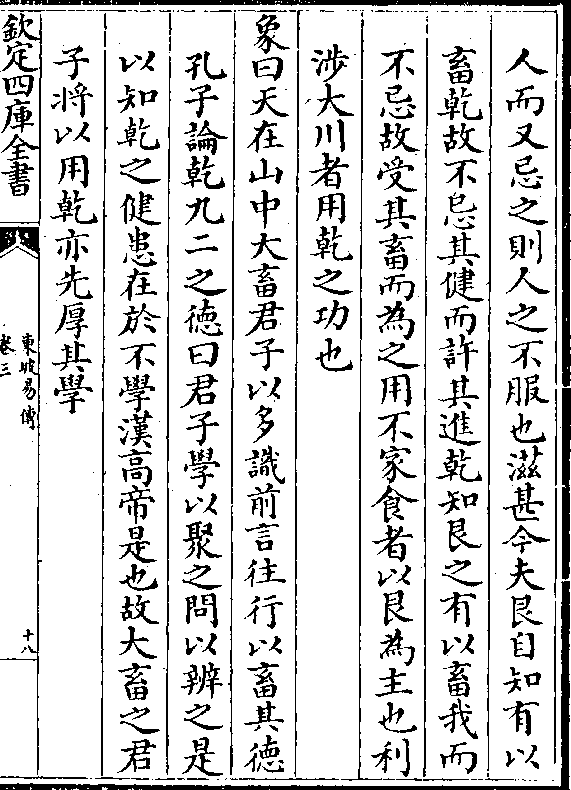 人而又忌之則人之不服也滋甚今夫艮自知有以
畜乾故不忌其健而許其進乾知艮之有以畜我而
不忌故受其畜而為之用不家食者以艮為主也利
涉大川者用乾之功也
象曰天在山中大畜君子以多識前言往行以畜其徳
孔子論乾九二之徳曰君子學以聚之問以辨之是
以知乾之健患在於不學漢高帝是也故大畜之君
子將以用乾亦先厚其學
欽定四庫全書
東坡易傳
卷三
十八